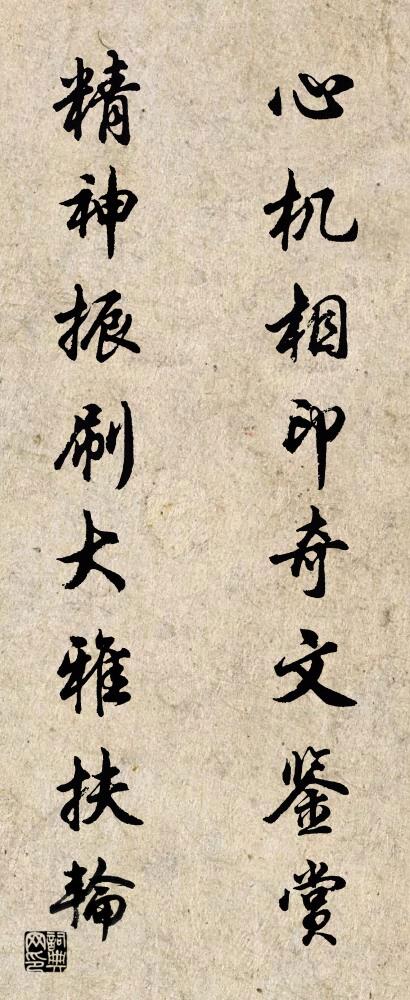 心机相印奇文鉴赏
精神振刷大雅扶輪
詞典網印